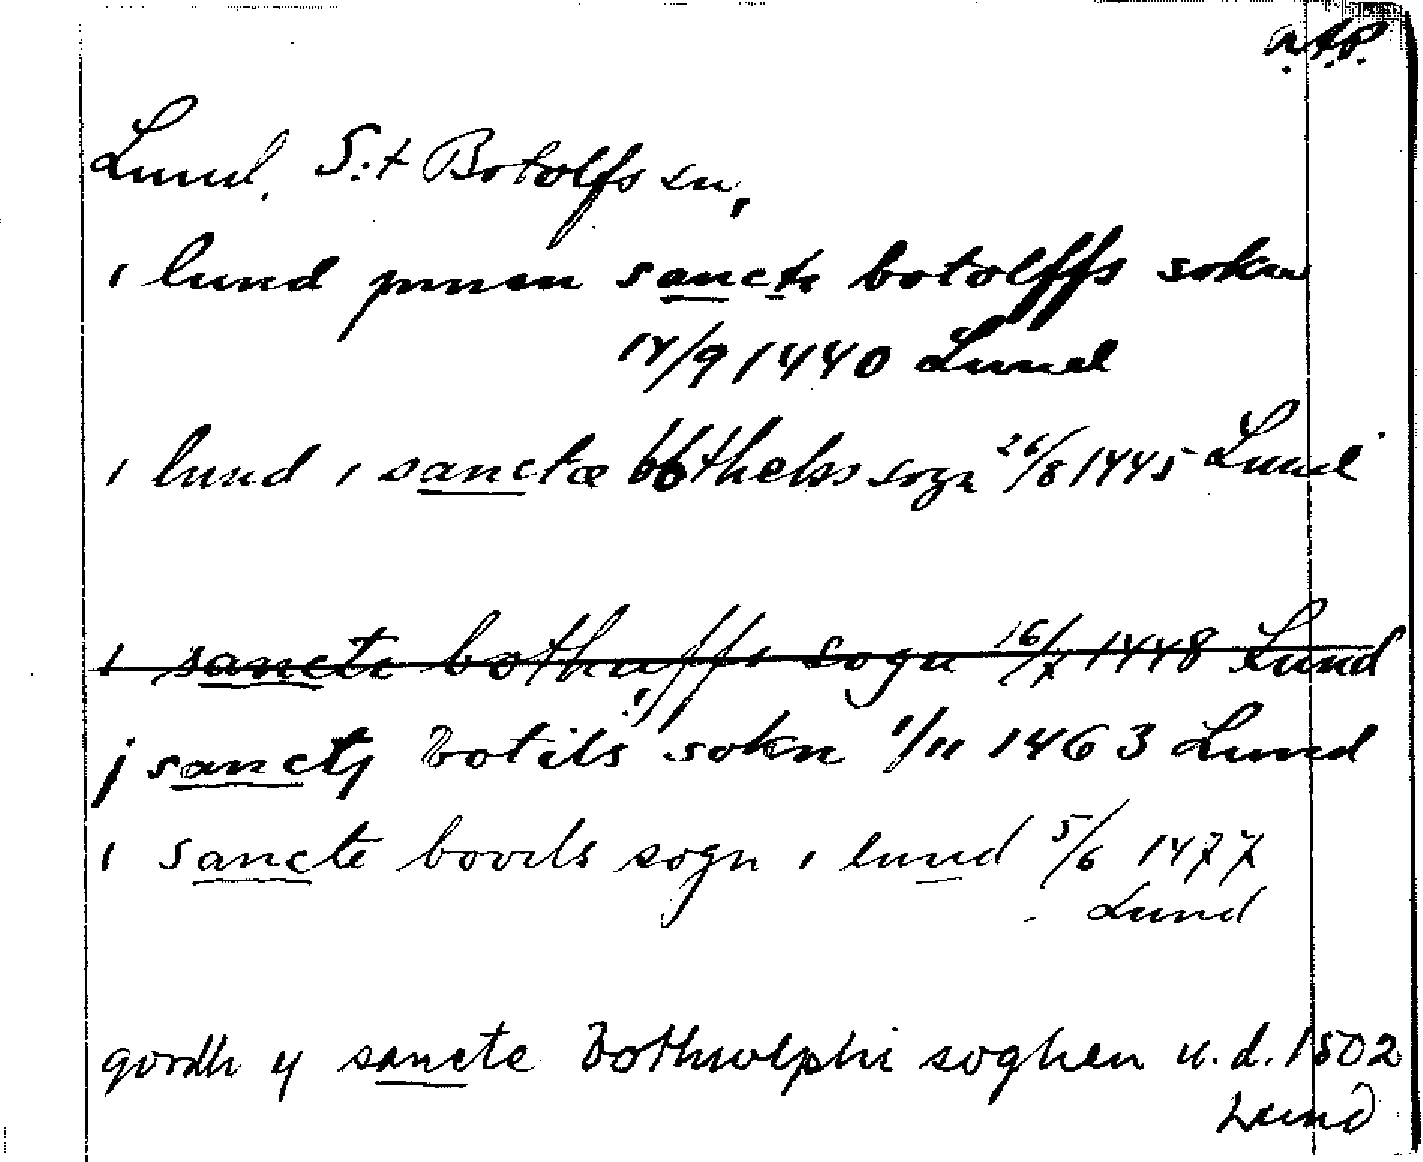 a.t.p.
Lund. S:t Botolfs sn,
i lund pnnen sancte botolffs sokn
14/9 1440 Lund
i lund i sanctæ bothels sogn 26/8 1445 Lund
i sancte bothuffs sogn 16/7 1448 Lund
j sanctj botils sokn 1/11 1463 Lund
i sancte bovils sogn i lund 5/6 1477
Lund
gordh y sancte Bothwlphi soghen u.d. 1502
Lund